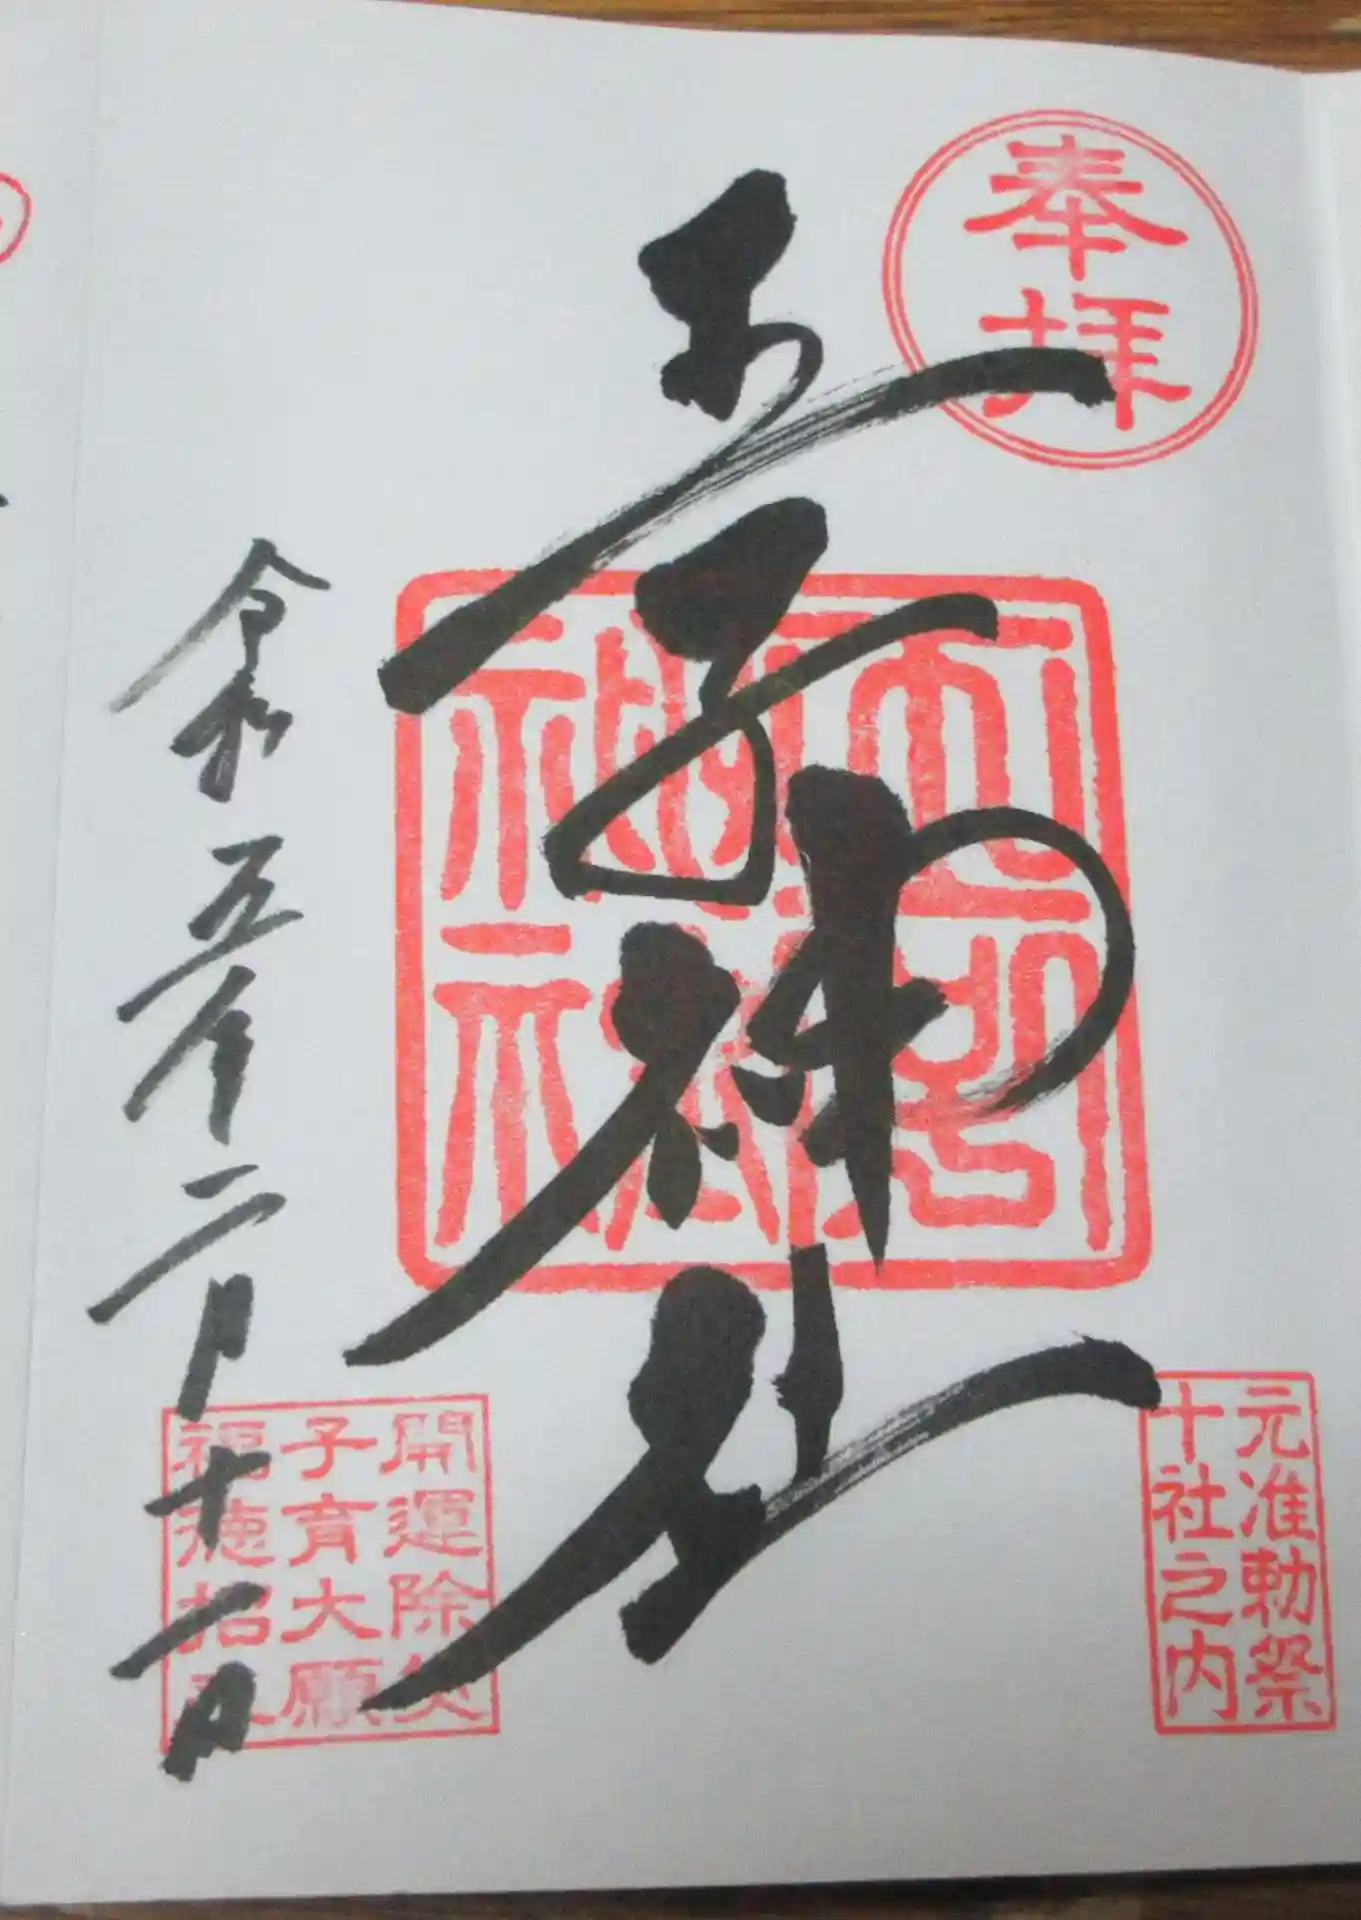 奉拝
元准勅祭
十社之内
王子神社
開運除災
子育大願
福徳招来
令和五年二月十一日